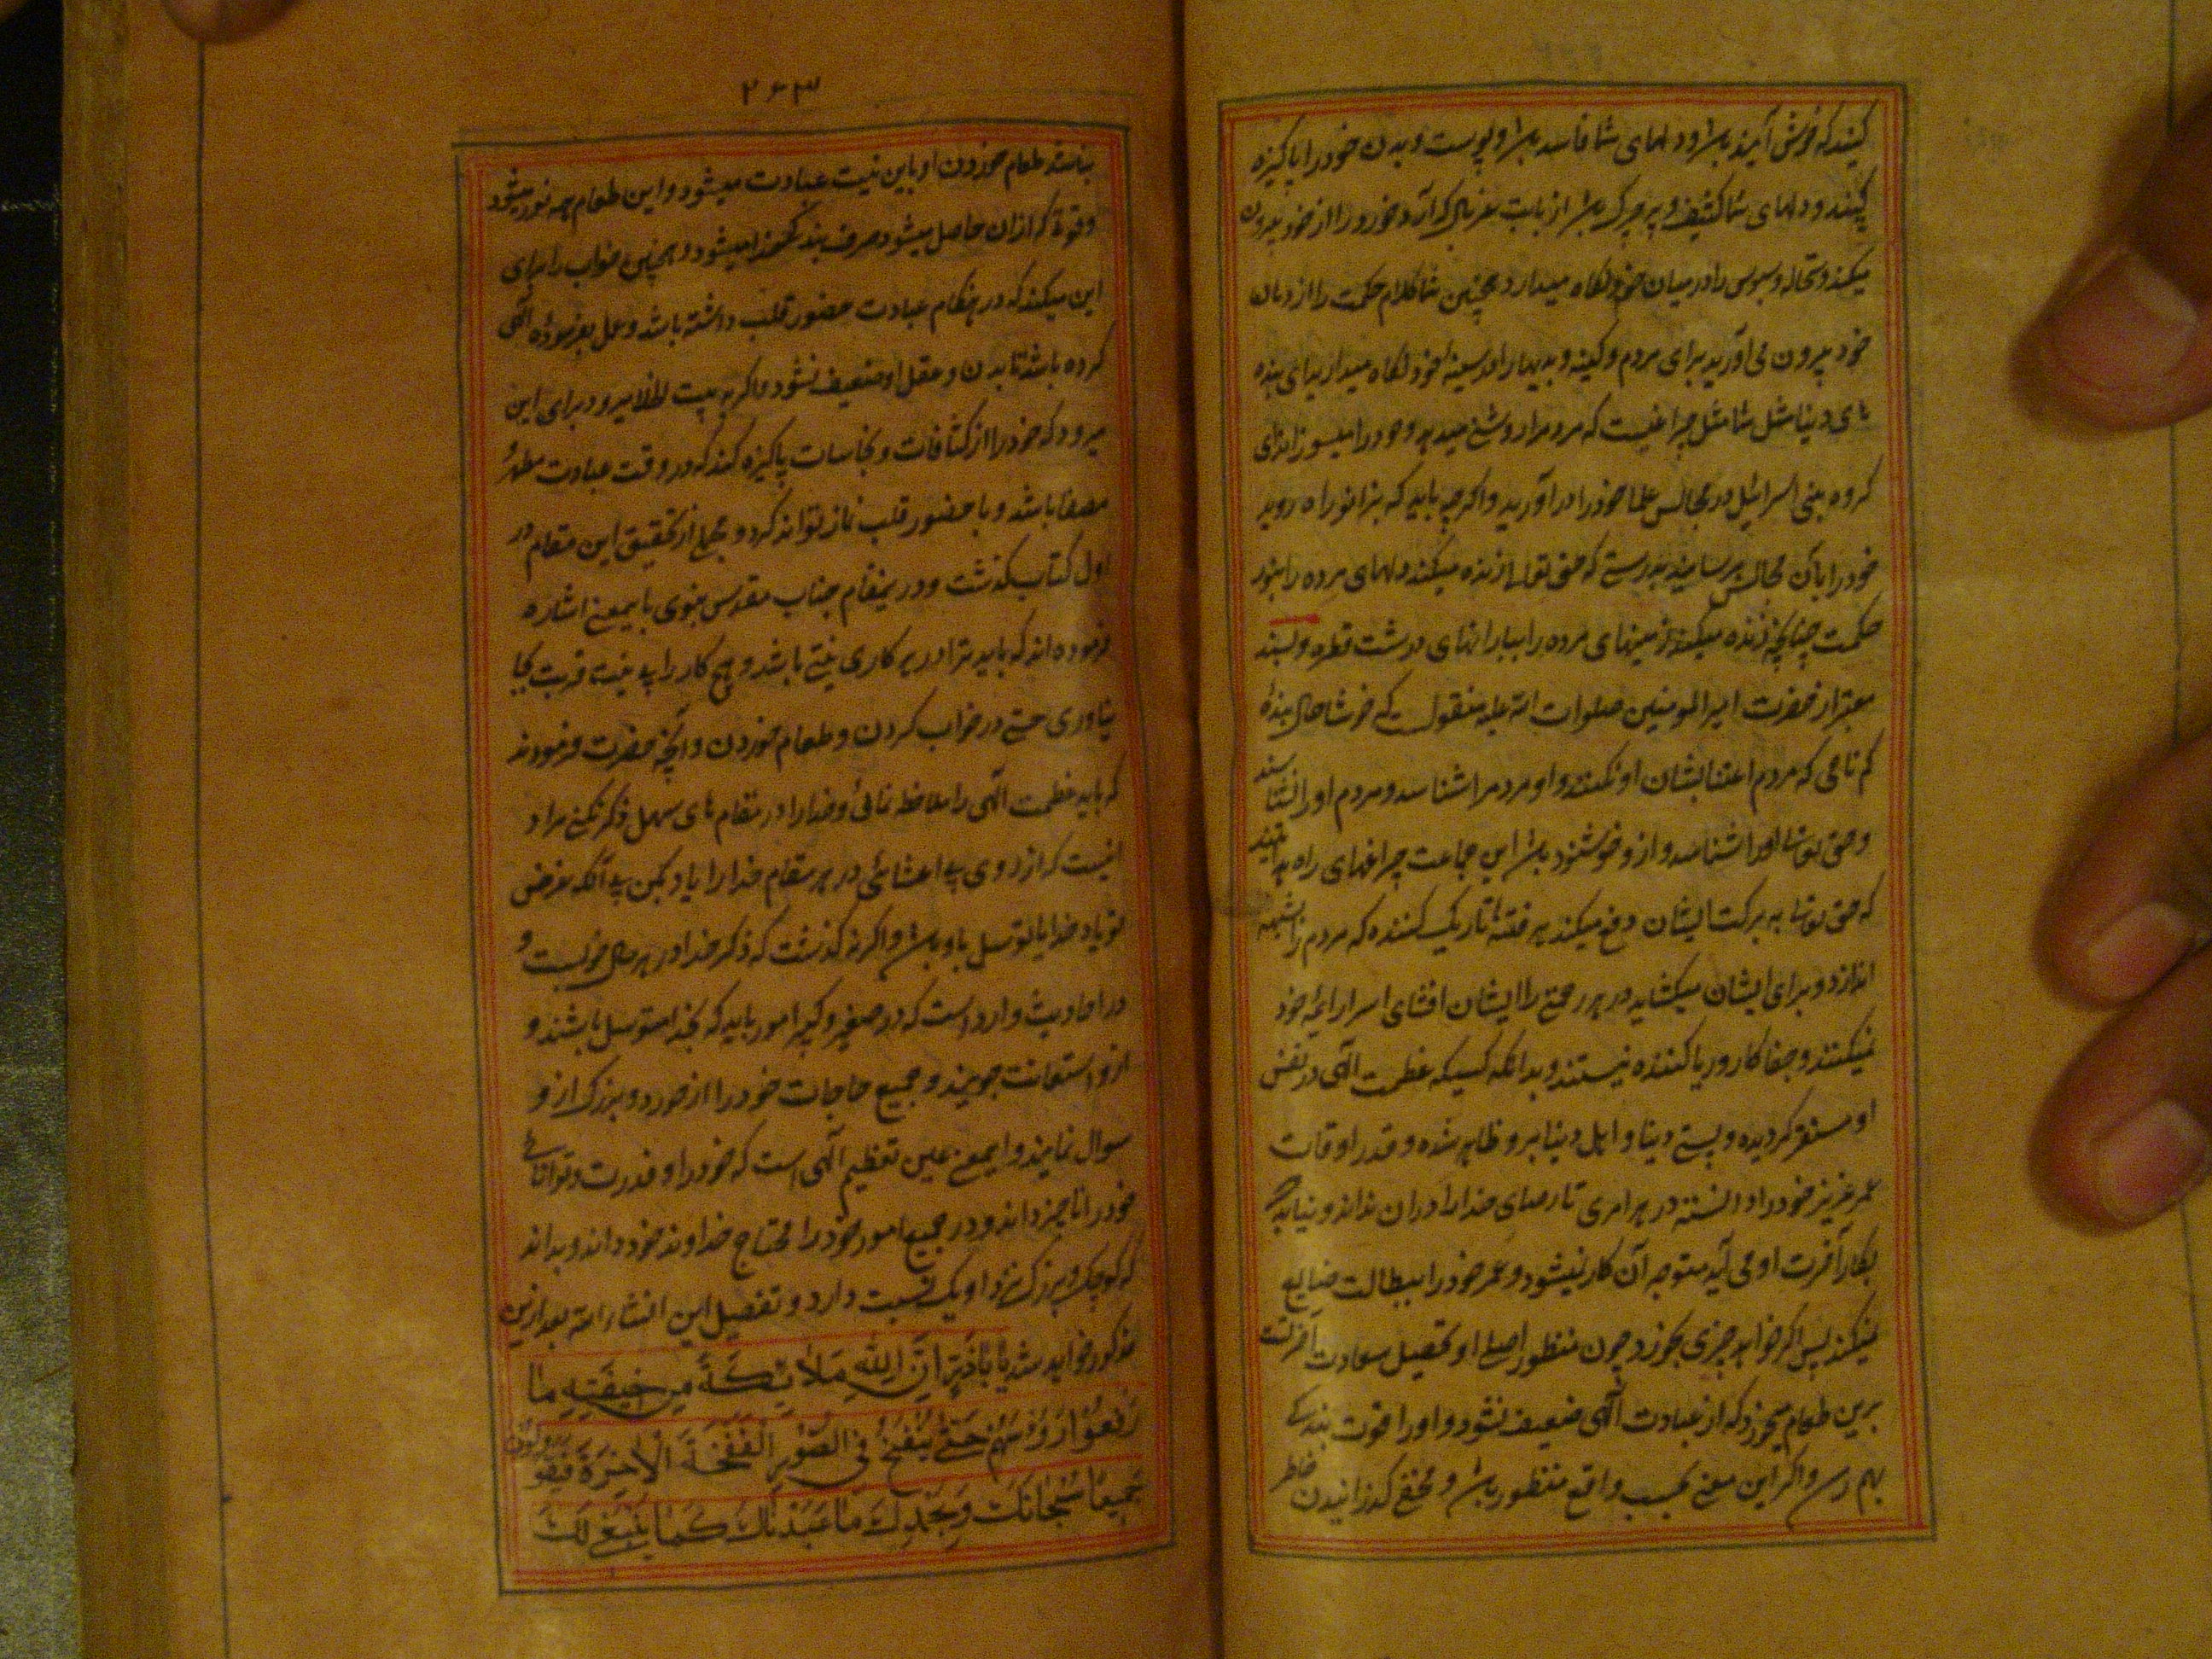 کنید که خوش آینده باشد و دلهای شما فاسد باشد و پوست و بدن خود را پاکیزه
کنید و دلهای شما کثیف و پر چرک باشد از بابت غربال که آرد خود را از خود بیرون
میکند و نخاله و سبوس را در میان خود نگاه میدارد همچنین شما کلام حکمت را از دهان
خود بیرون می آورید برای مردم و کینه و بدیها را در سینه خود نگاه میدارید ای بنده
های دنیا مثل شما مثل چراغیست که مردم را روشنی میدهد و خود را میسوزاند ای
گروه بنی اسرائیل در مجالس علما خود را در آورید و اگر چه باید که بزانو راه روید
خود را بآن مجالس برسانید بدرستی که حق تعالی زنده میکند دلهای مرده را بنور
حکمت چنانچه زنده میکند زمینهای مرده را ببارانهای درشت قطره و بسند
معتبر از حضرت امیر المومنین صلوات الله علیه منقولست که خوشا حال بنده
گم نامی که مردم اعتنا بشان او نکنند و او مردم را شناسد و مردم او را نشناسند
و حق تعالی او را شناسد و از و خوشنود باشد این جماعت چراغهای راه هدایتند
که حق تعالی به برکت ایشان دفع میکند هر فتنه تاریک کننده که مردم را بشبهه
اندازد و برای ایشان میکشاید در هر رحمتی را ایشان افشای اسرار ائمه خود
نمیکنند و جفاکار و ریا کننده نیستند و بدانکه کسیکه عظمت الهی در نفس
او مستقر گردیده و پستی دنیا و اهل دنیا برو ظاهر شده و قدر اوقات
عمر عزیز خود را دانسته در هر امری تا رضای خدا را در ان نداند و نیابد که
بکار آخرت او می آید متوجه آن کار نمیشود و عمر خود را ببطالت ضایع
نمیکند پس اگر خواهد چیزی بخورد چون منظور اصلی او تحصیل سعادت آخرتست
برین طعام میخورد که از عبادت الهی ضعیف نشود و او را قوت بندگی
بهم رسد و اگر این معنی بحسب واقع منظور باشد و محض گذرانیدن خاطر
۲۶۳
نباشد طعام خوردن او باین نیت عبادت میشود و این طعام همه نور میشود
و قوة که ازان حاصل میشود صرف بندگی خدا میشود و همچنین خواب را برای
این میکند که در هنگام عبادت حضور قلب داشته باشد و عمل بفرموده الهی
کرده باشد تا بدن و عقل او ضعیف نشود و اگر به بیت الخلا میرود برای این
میرود که خود را از کثافات و نجاسات پاکیزه کند که در وقت عبادت مطهر و
مصفا باشد و با حضور قلب نماز تواند کرد و مجملی از تحقیق این مقام در
اول کتاب گذشت و در ینمقام جناب مقدس نبوی باینمعنی اشاره
فرموده اند که باید ترا در هر کاری نیتی باشد و هیچ کار را بی نیت قربت بجا
نیاوری حتی در خواب کردن و طعام خوردن و آنچه حضرت فرمودند
که باید عظمت الهی را ملاحظه نمائی و خدا را در مقام های سهل ذکر نکنی مراد
اینست که از روی بی اعتنائی در هر مقام خدا را یاد مکن بی آنکه غرض
تو یاد خدا یا توسل باو باشد و اگرنه گذشت که ذکر خدا در هر حال خوبست و
در احادیث وارد است که در صغیر و کبیر امور باید که بخدا متوسل باشند و
ازو استعانت جویند و جمیع حاجات خود را از خورد و بزرگ از و
سوال نمایند و اینمعنی عین تعظیم الهی است که خود را و قدرت و توانائی
خود را ناچیز داند و در جمیع امور خود را محتاج خداوند خود داند و بداند
که کوچک و بزرگ نزد او یک نسبت دارد و تفصیل این انشاء الله بعد ازین
مذکور خواهد شد یا اَبَاذَرٍّ اِنَّ لِلّٰهِ مَلَائِکَةً مِنْ خِیفَتِهِ مَا
رَفَعُوا رُؤُسَهُمْ حَتّٰی یُنْفَخَ فِی الصُّورِ النَّفْخَةَ الْاَخِیرَةَ فَیَقُولُونَ
جَمِیعًا سُبْحَانَكَ وَبِحَمْدِكَ مَا عَبَدْنَاكَ كَمَا یَنْبَغِی لَكَ